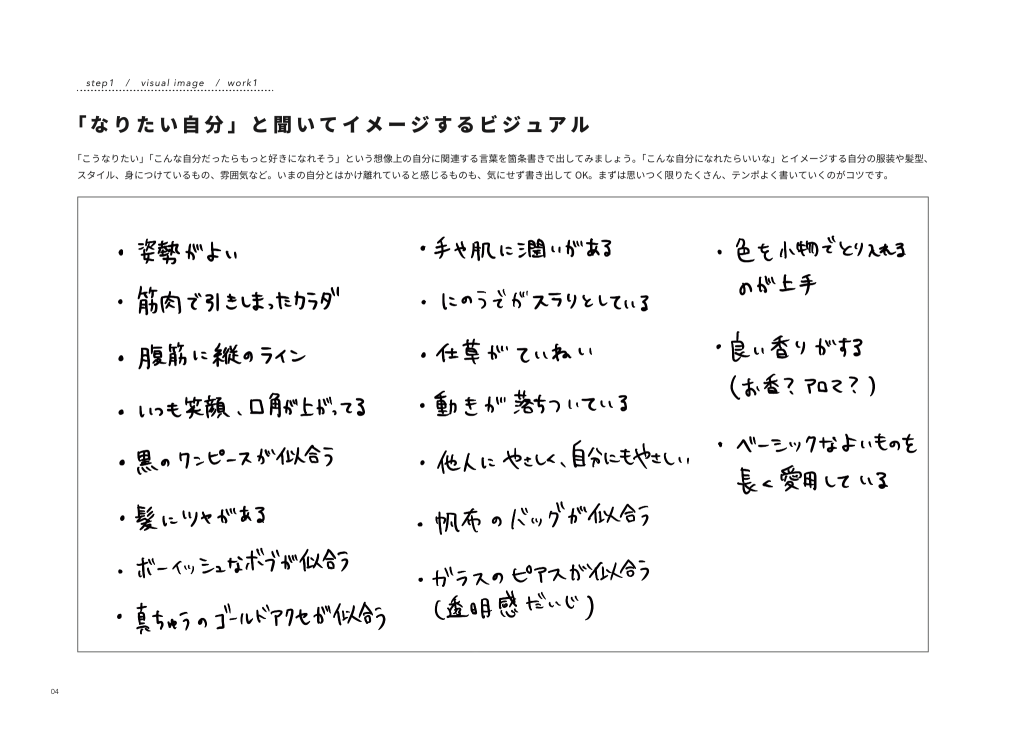 step1 / visual image / work1
「なりたい自分」と聞いてイメージするビジュアル
「こうなりたい」「こんな自分だったらもっと好きになれそう」という想像上の自分に関連する言葉を箇条書きで出してみましょう。「こんな自分になれたらいいな」とイメージする自分の服装や髪型、
スタイル、身につけているもの、雰囲気など。いまの自分とはかけ離れていると感じるものも、気にせず書き出して OK。まずは思いつく限りたくさん、テンポよく書いていくのがコツです。
・姿勢がよい
・筋肉で引きしまったカラダ
・腹筋に縦のライン
・いつも笑顔、口角が上がってる
・黒のワンピースが似合う
・髪にツヤがある
・ボーイッシュなボブが似合う
・真ちゅうのゴールドアクセが似合う
・手や肌に潤いがある
・にのうでがスラリとしている
・仕草がていねい
・動きが落ちついている
・他人にやさしく、自分にもやさしい
・帆布のバッグが似合う
・ガラスのピアスが似合う
(透明感だいじ)
・色を小物でとり入れる
のが上手
・良い香りがする
(お香？アロマ？)
・ベーシックなよいものを
長く愛用している
04